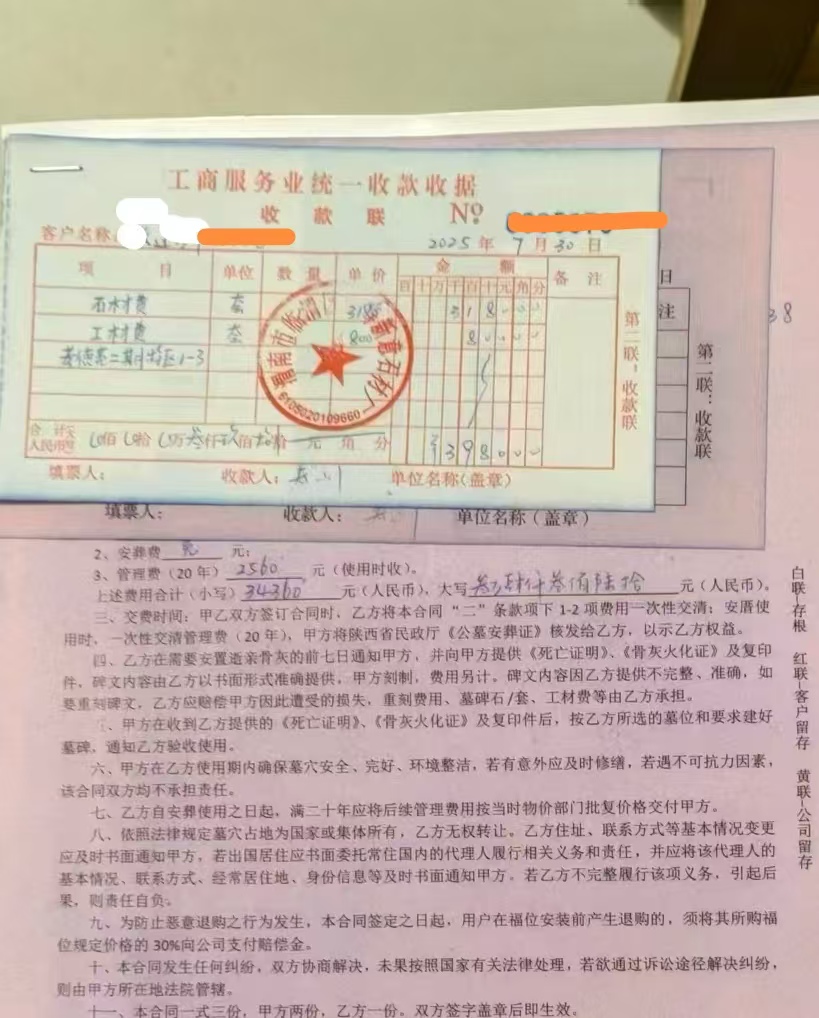 工商服务业统一收款收据
收款联 №
客户名称： 2025年7月30日
项目 单位 数量 单价 金额 备注
百十万千百十元角分
石材费 套 3180 318000
工材费 套 800 80000
二期 1-3
合计 人民币 佰 拾 万叁仟玖佰 拾 元 角 分 ¥398000
填票人： 收款人： 单位名称(盖章)
第二联：收款联
渭南市临渭区 石材厂
6105020109660
日
注
38
第二联：收款联
填票人： 收款人： 单位名称（盖章）
2、安葬费 免 元；
3、管理费（20年）2560 元（使用时收）。
上述费用合计（小写）34360 元（人民币），大写叁万肆仟叁佰陆拾 元（人民币）。
三、交费时间：甲乙双方签订合同时，乙方将本合同“二”条款项下1-2项费用一次性交清；安厝使
用时、一次性交清管理费（20年），甲方将陕西省民政厅《公墓安葬证》核发给乙方，以示乙方权益。
四、乙方在需要安置逝亲骨灰的前七日通知甲方，并向甲方提供《死亡证明》、《骨灰火化证》及复印
件，碑文内容由乙方以书面形式准确提供，甲方刻制，费用另计。碑文内容因乙方提供不完整、准确，如
要重刻碑文，乙方应赔偿甲方因此遭受的损失，重刻费用、墓碑石/套、工材费等由乙方承担。
、甲方在收到乙方提供的《死亡证明》、《骨灰火化证》及复印件后，按乙方所选的墓位和要求建好
墓碑，通知乙方验收使用。
六、甲方在乙方使用期内确保墓穴安全、完好、环境整洁，若有意外应及时修缮，若遇不可抗力因素，
该合同双方均不承担责任。
七、乙方自安葬使用之日起，满二十年应将后续管理费用按当时物价部门批复价格交付甲方。
八、依照法律规定墓穴占地为国家或集体所有，乙方无权转让。乙方住址、联系方式等基本情况变更
应及时书面通知甲方，若出国居住应书面委托常住国内的代理人履行相关义务和责任，并应将该代理人的
基本情况、联系方式、经常居住地、身份信息等及时书面通知甲方。若乙方不完整履行该项义务，引起后
果，则责任自负。
九、为防止恶意退购之行为发生，本合同签定之日起，用户在福位安装前产生退购的，须将其所购福
位规定价格的30%向公司支付赔偿金。
十、本合同发生任何纠纷，双方协商解决，未果按照国家有关法律处理，若欲通过诉讼途径解决纠纷，
则由甲方所在地法院管辖。
十一、本合同一式三份，甲方两份，乙方一份。双方签字盖章后即生效。
白联-存根 红联-客户留存 黄联-公司留存